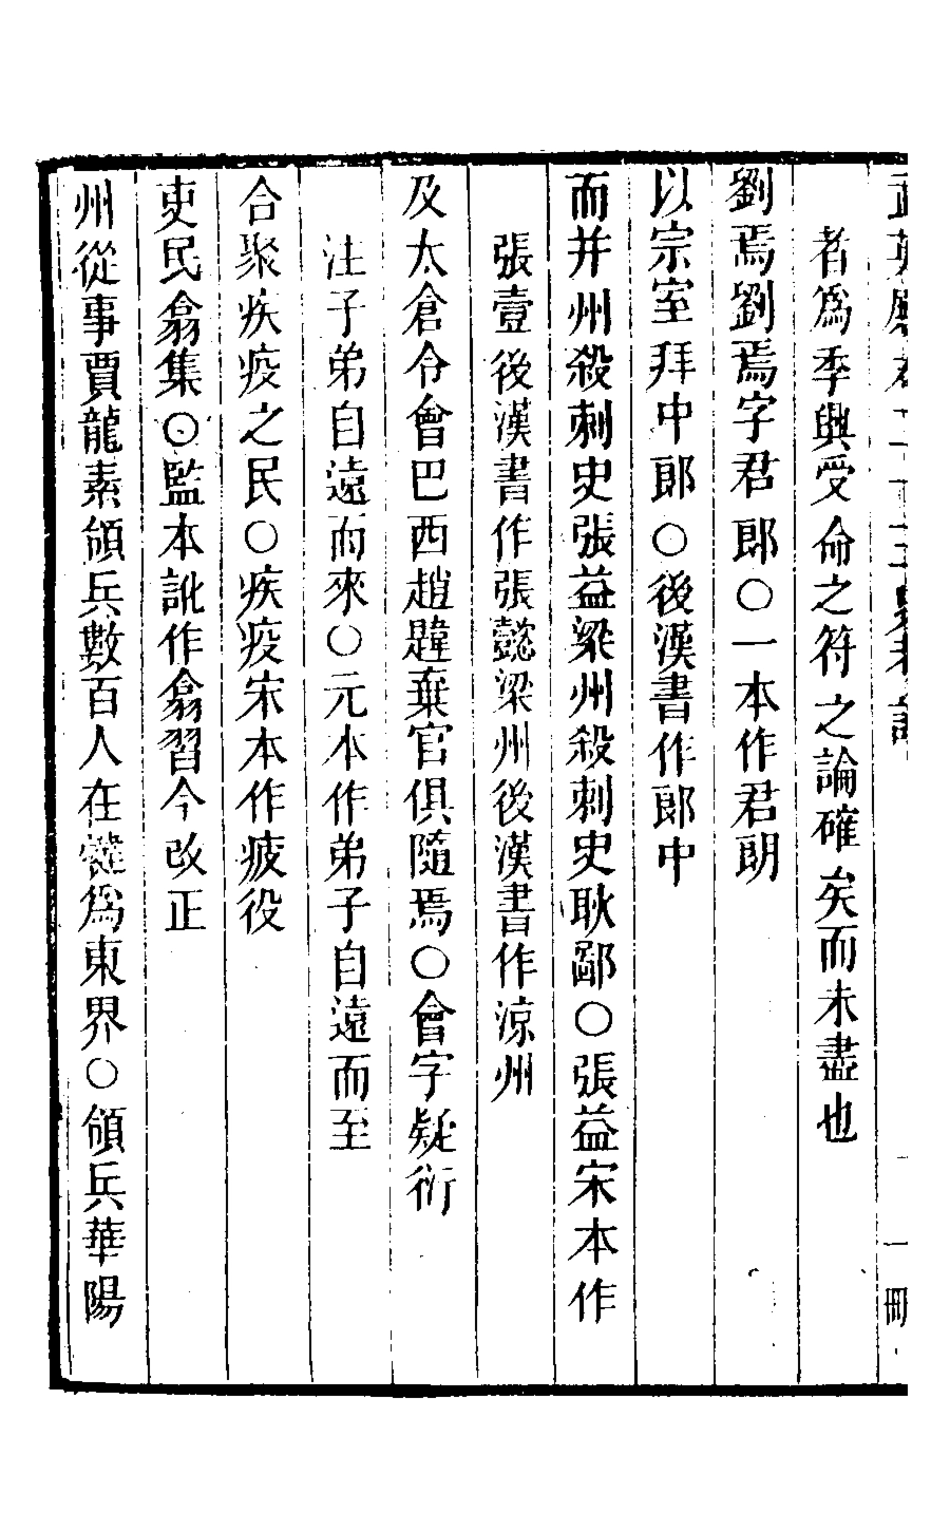 者爲季與受命之符之論確矣而未盡也
劉焉劉焉字君郎○一本作君朗
以宗室拜中郎○後漢書作郎中
而并州殺刺史張益梁州殺刺史耿鄙○張益宋本作
張壹後漢書作張懿梁州後漢書作涼州
及太倉令會巴西趙韙棄官俱隨焉○會字疑衍
注子弟自遠而來○元本作弟子自遠而至
合聚疾疫之民○疾疫宋本作疲役
吏民翕集○監本訛作翕習今改正
州從事賈龍素領兵數百人在犍爲東界○領兵華陽